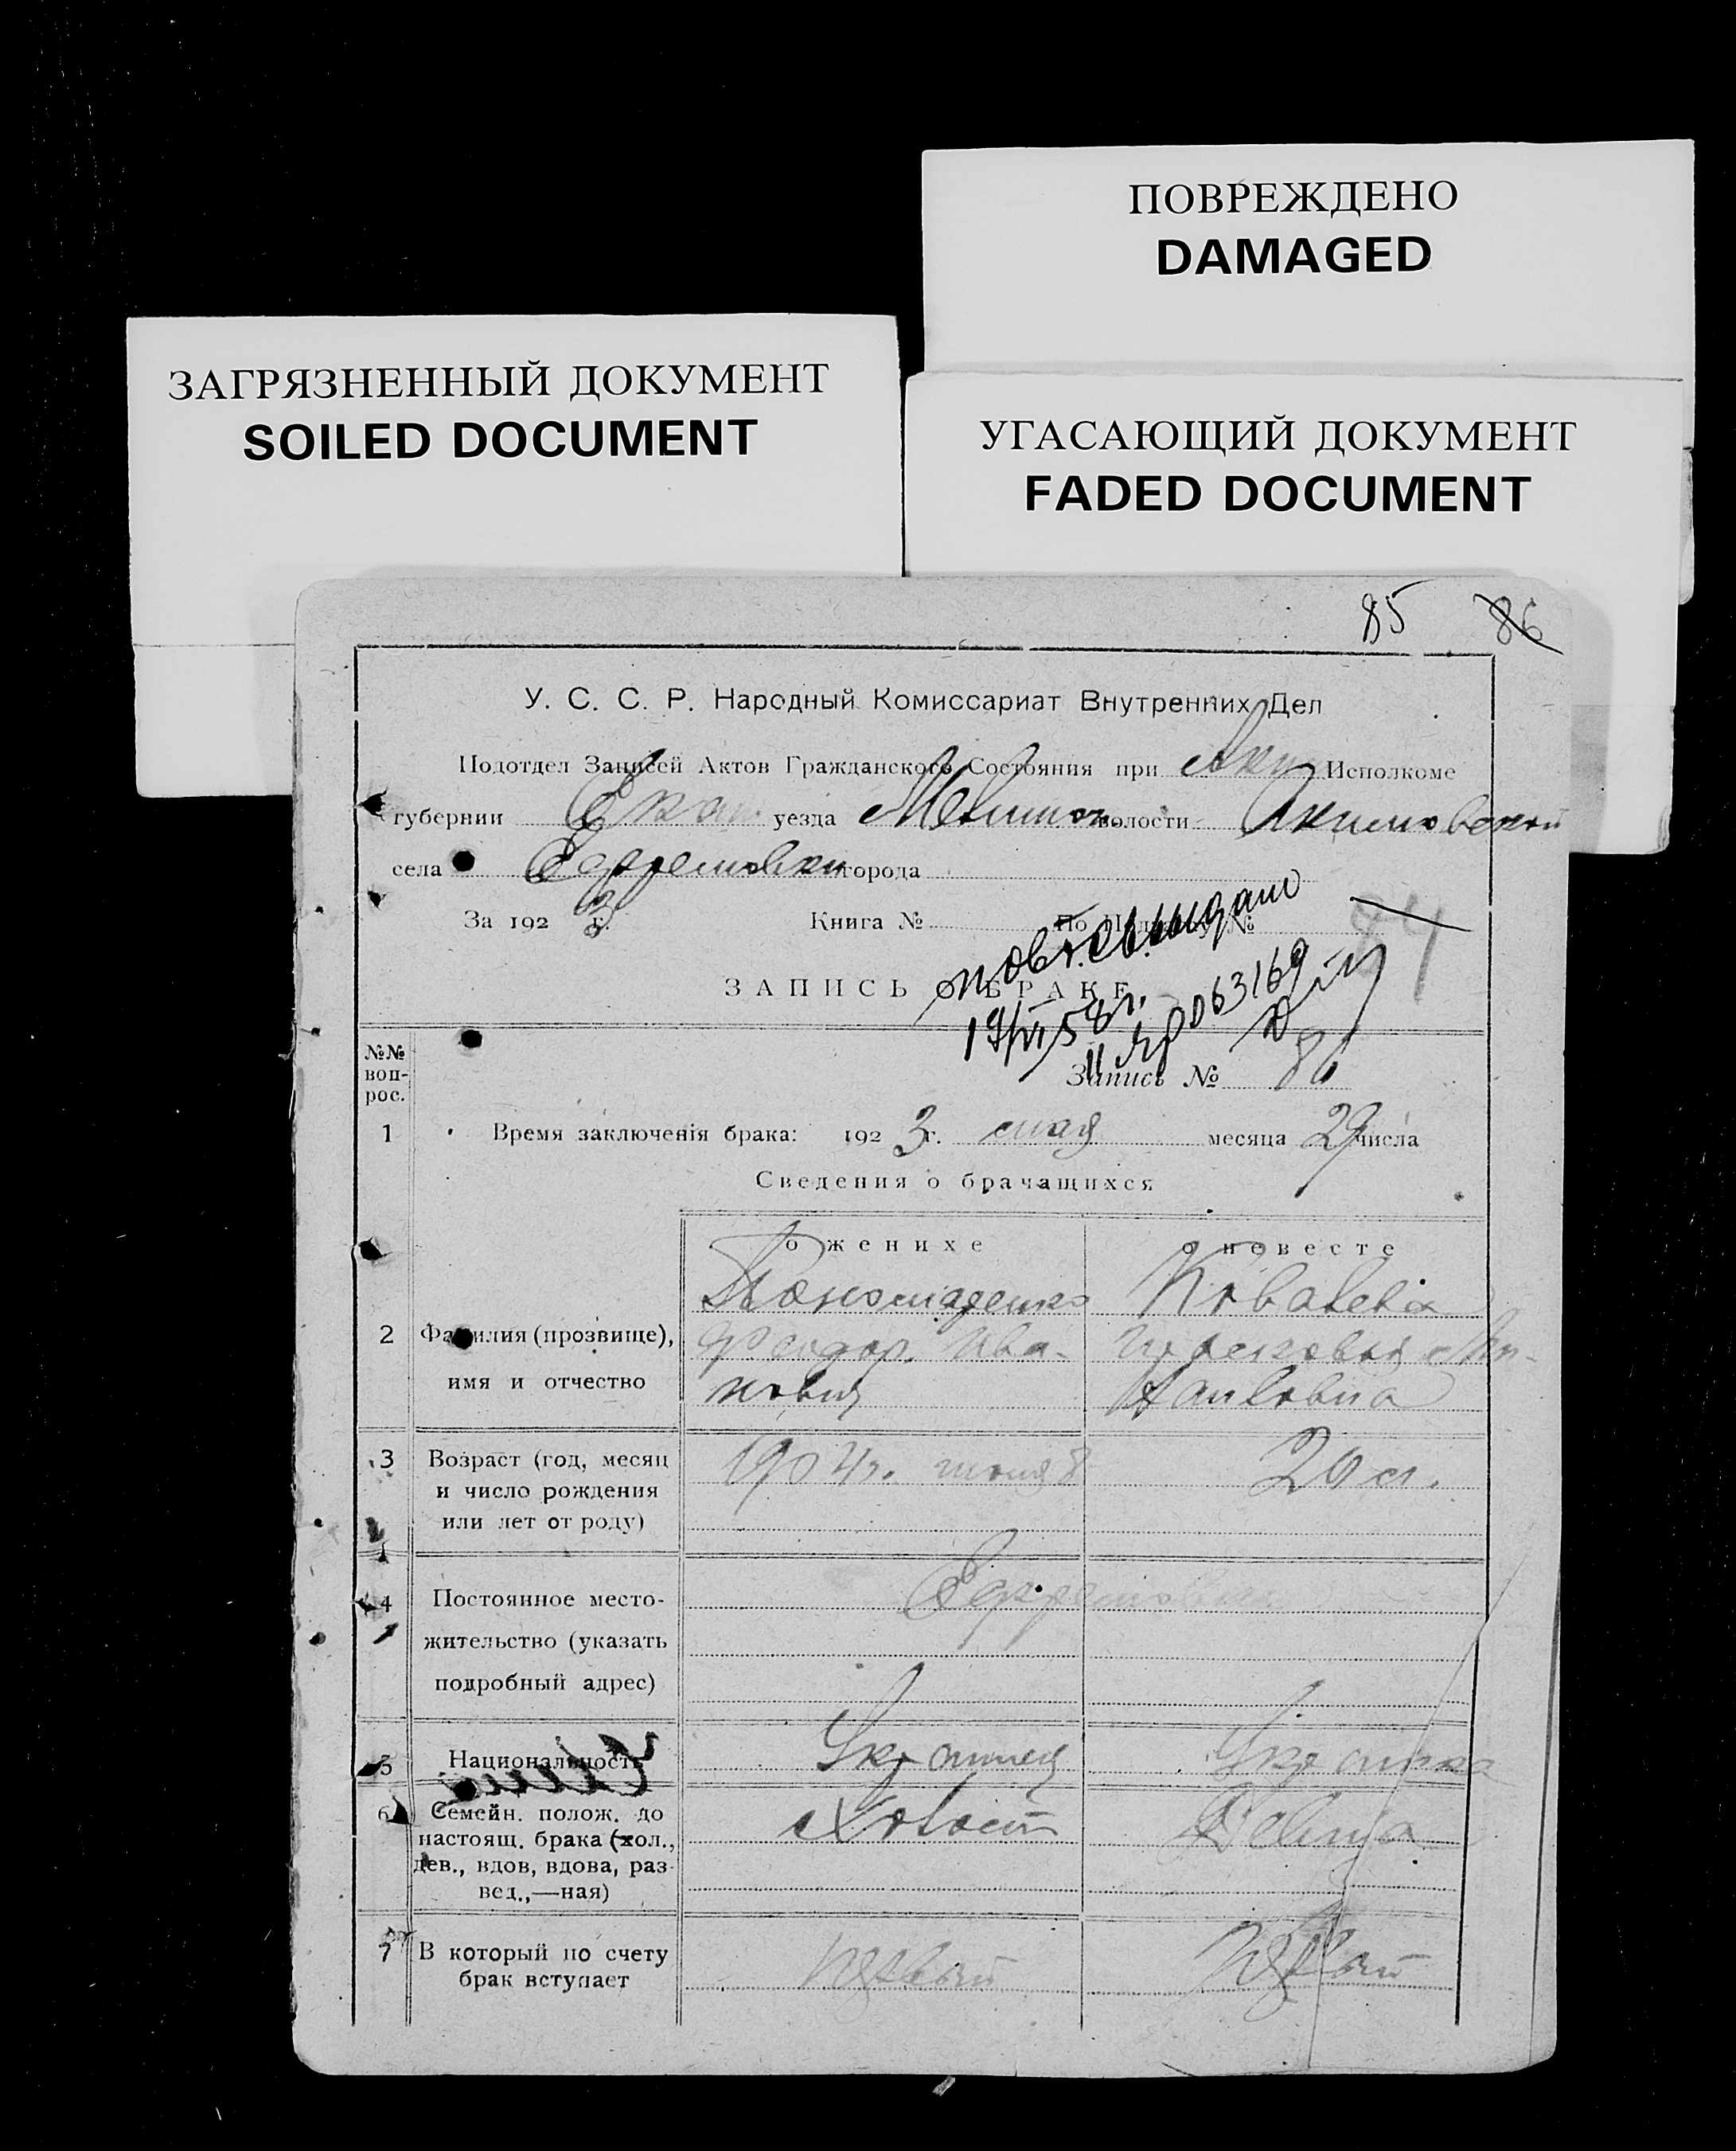 ПОВРЕЖДЕНО
DAMAGED
ЗАГРЯЗНЕННЫЙ ДОКУМЕНТ
SOILED DOCUMENT
УГАСАЮЩИЙ ДОКУМЕНТ
FADED DOCUMENT
85 86
У. С. С. Р. Народный Комиссариат Внутренних Дел
Подотдел Записей Актов Гражданского Состояния при Аким Исполкоме
губернии Екат. уезда Мелитоп. волости Акимовской
села Ефремовки города
За 1923 г. Книга № По №
повт. св. выдано
ЗАПИСЬ О БРАКЕ
19/VI 58 г.
063169
Запись № 86
№№ воп-
рос.
1 Время заключенія брака: 1923 г. мая месяца 29 числа
Сведения о брачащихся
о женихе о невесте
Пономаренко Ковалева
2 Фамилия (прозвище), Феодор Ива-
имя и отчество нович
3 Возраст (год, месяц 1904 г. 20 л.
и число рождения
или лет от роду)
4 Постоянное место- Ефремовка
жительство (указать
подробный адрес)
5 Национальность Украинец Украинка
6 Семейн. полож. до Холост Девица
настоящ. брака (хол.,
дев., вдов, вдова, раз-
вед.,—ная)
7 В который по счету первый первый
брак вступает